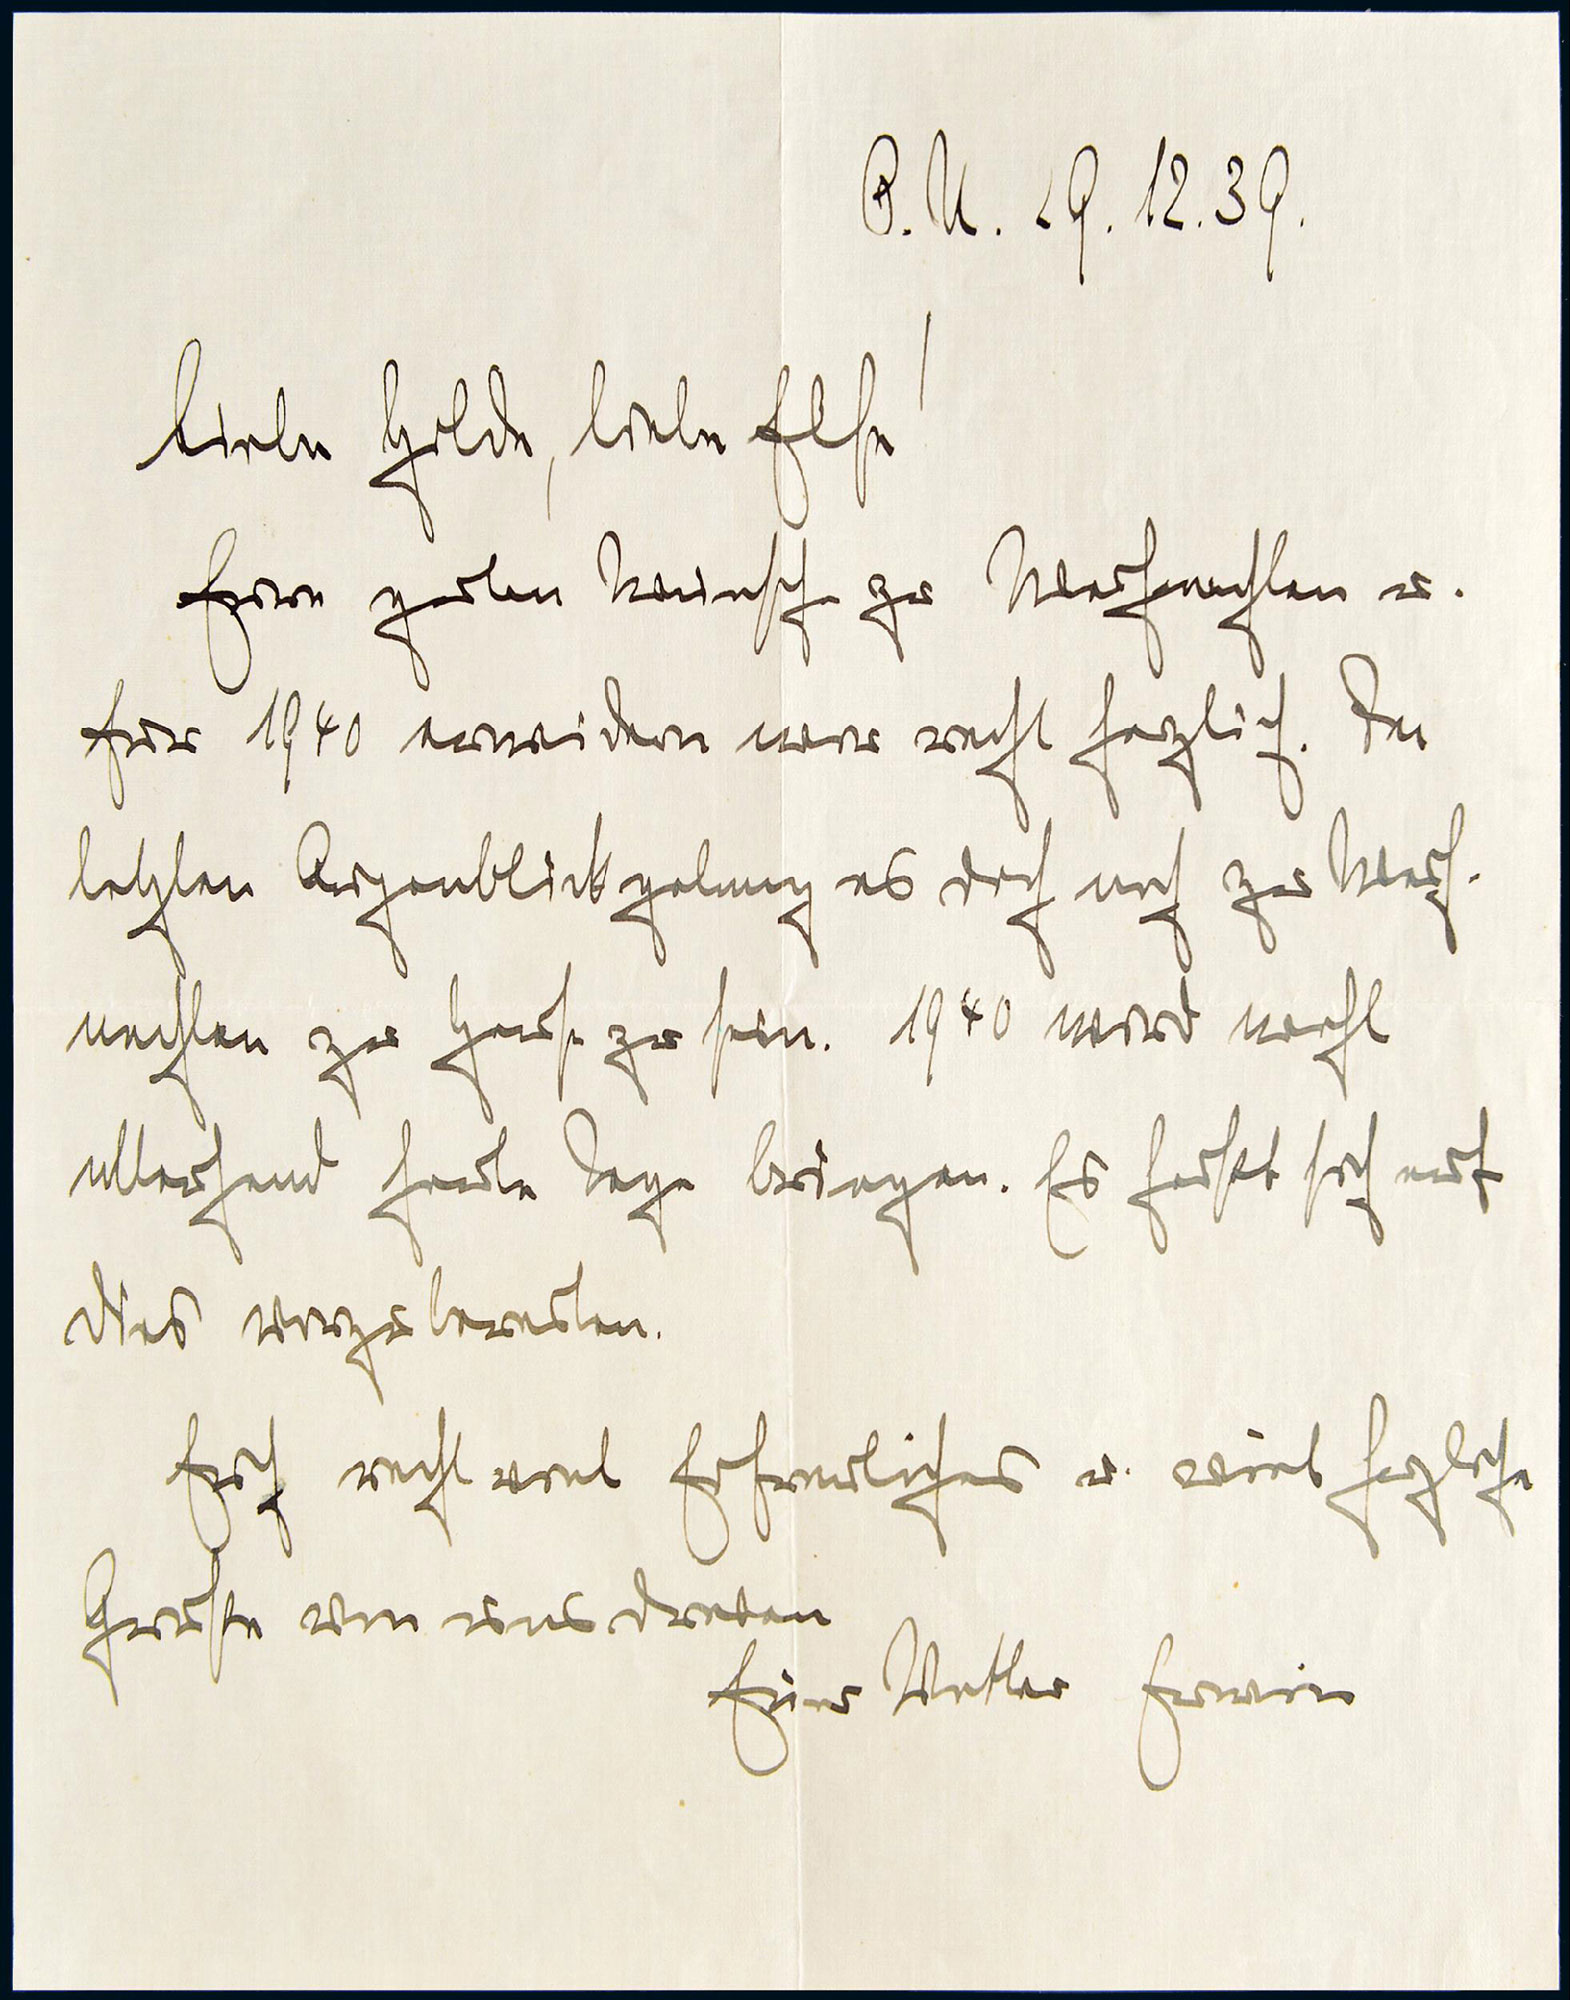 B. U. 29. 12. 39.
Liebe Hilde, liebe Else!
Eure guten Wünsche zu Weihnachten u.
für 1940 erwidern wir recht herzlich. Im
letzten Augenblick gelang es doch noch zu Weih-
nachten zu Hause zu sein. 1940 wird wohl
allerhand harte Tage bringen. Es heißt sich auf
dies vorzubereiten.
Euch recht viel Erfreuliches u. viele herzliche
Grüße von uns dreien
Euer Vetter Erwin